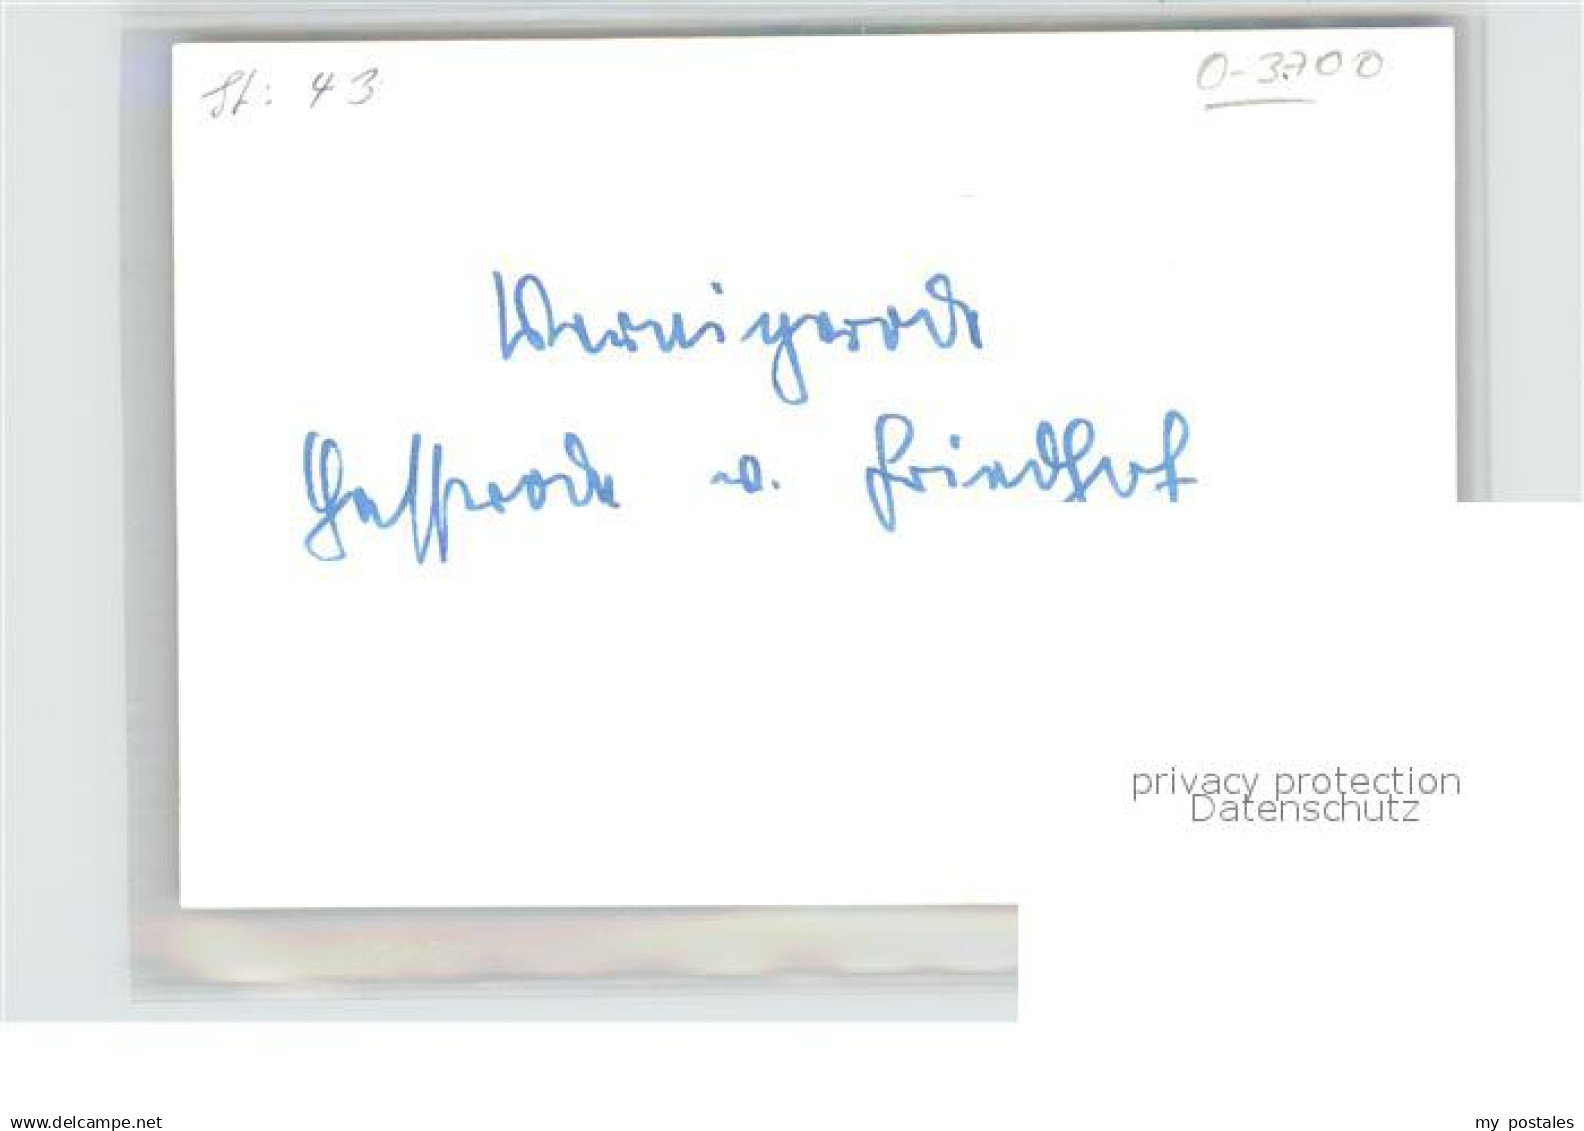 St: 43
0-3700
Wernigerode
Hasserode v. Friedhof
privacy protection
Datenschutz
www.delcampe.net
my postales